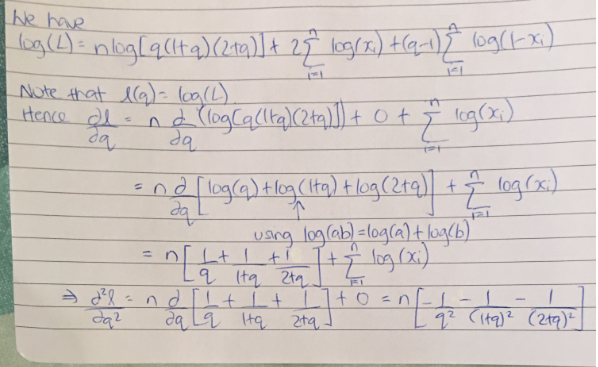 We have
log(L) = nlog[q(1+q)(2+q)] + 2 ∑_{i=1}^{n} log(x_i) + (q-1) ∑_{i=1}^{n} log(1-x_i)
Note that l(q) = log(L).
Hence ∂l/∂q = n ∂/∂q (log[q(1+q)(2+q)]) + 0 + ∑_{i=1}^{n} log(x_i)
= n ∂/∂q [log(q) + log(1+q) + log(2+q)] + ∑_{i=1}^{n} log(x_i)
↑
using log(ab) = log(a) + log(b)
= n [1/q + 1/(1+q) + 1/(2+q)] + ∑_{i=1}^{n} log(x_i)
⇒ ∂²l/∂q² = n ∂/∂q [1/q + 1/(1+q) + 1/(2+q)] + 0 = n [-1/q² - 1/(1+q)² - 1/(2+q)²]